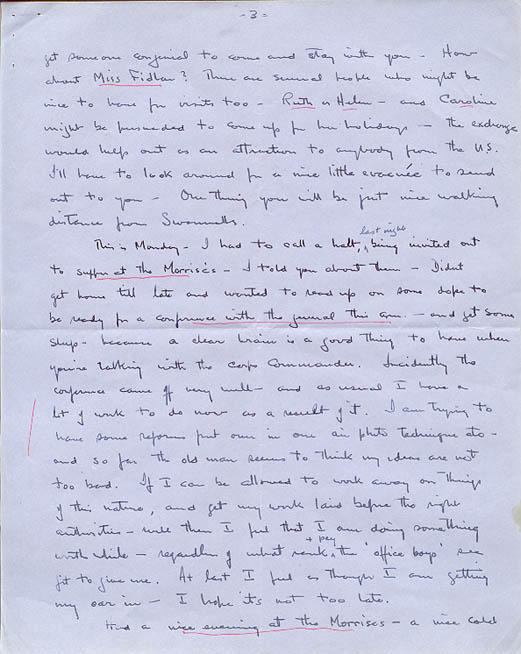 - 3 -
get someone congenial to come and stay with you - How
about Miss Fidlar? There are several people who might be
nice to have for visits too - Ruth or Helen - and Caroline
might be persuaded to come up for her holidays - the exchange
would help out as an attraction to anybody from the U.S.
I'll have to look around for a nice little evacuée to send
out to you - One thing you will be just nice walking
distance from
This is Monday - I had to call a halt, last night being invited out
to supper at the Morrises - I told you about them - Didnt
get home till late and wanted to read up on some dope to
be ready for a conference with the general this a.m. - and get some
sleep - because a clear brain is a good thing to have when
you're talking with the Corps Commander. Incidently the
conference came off very well - and as usual I have a
lot of work to do now as a result of it. I am trying to
have some reforms put over in our air photo technique etc -
and so far the old man seems to think my ideas are not
too bad. If I can be allowed to work away on things
of this nature, and get my work laid before the right
authorities - well then I feel that I am doing something
worth while - regardless of what rank + pay the 'office boys' see
fit to give me. At last I feel as though I am getting
my oar in - I hope it's not too late.
Had a nice evening at the Morrises - a nice cold